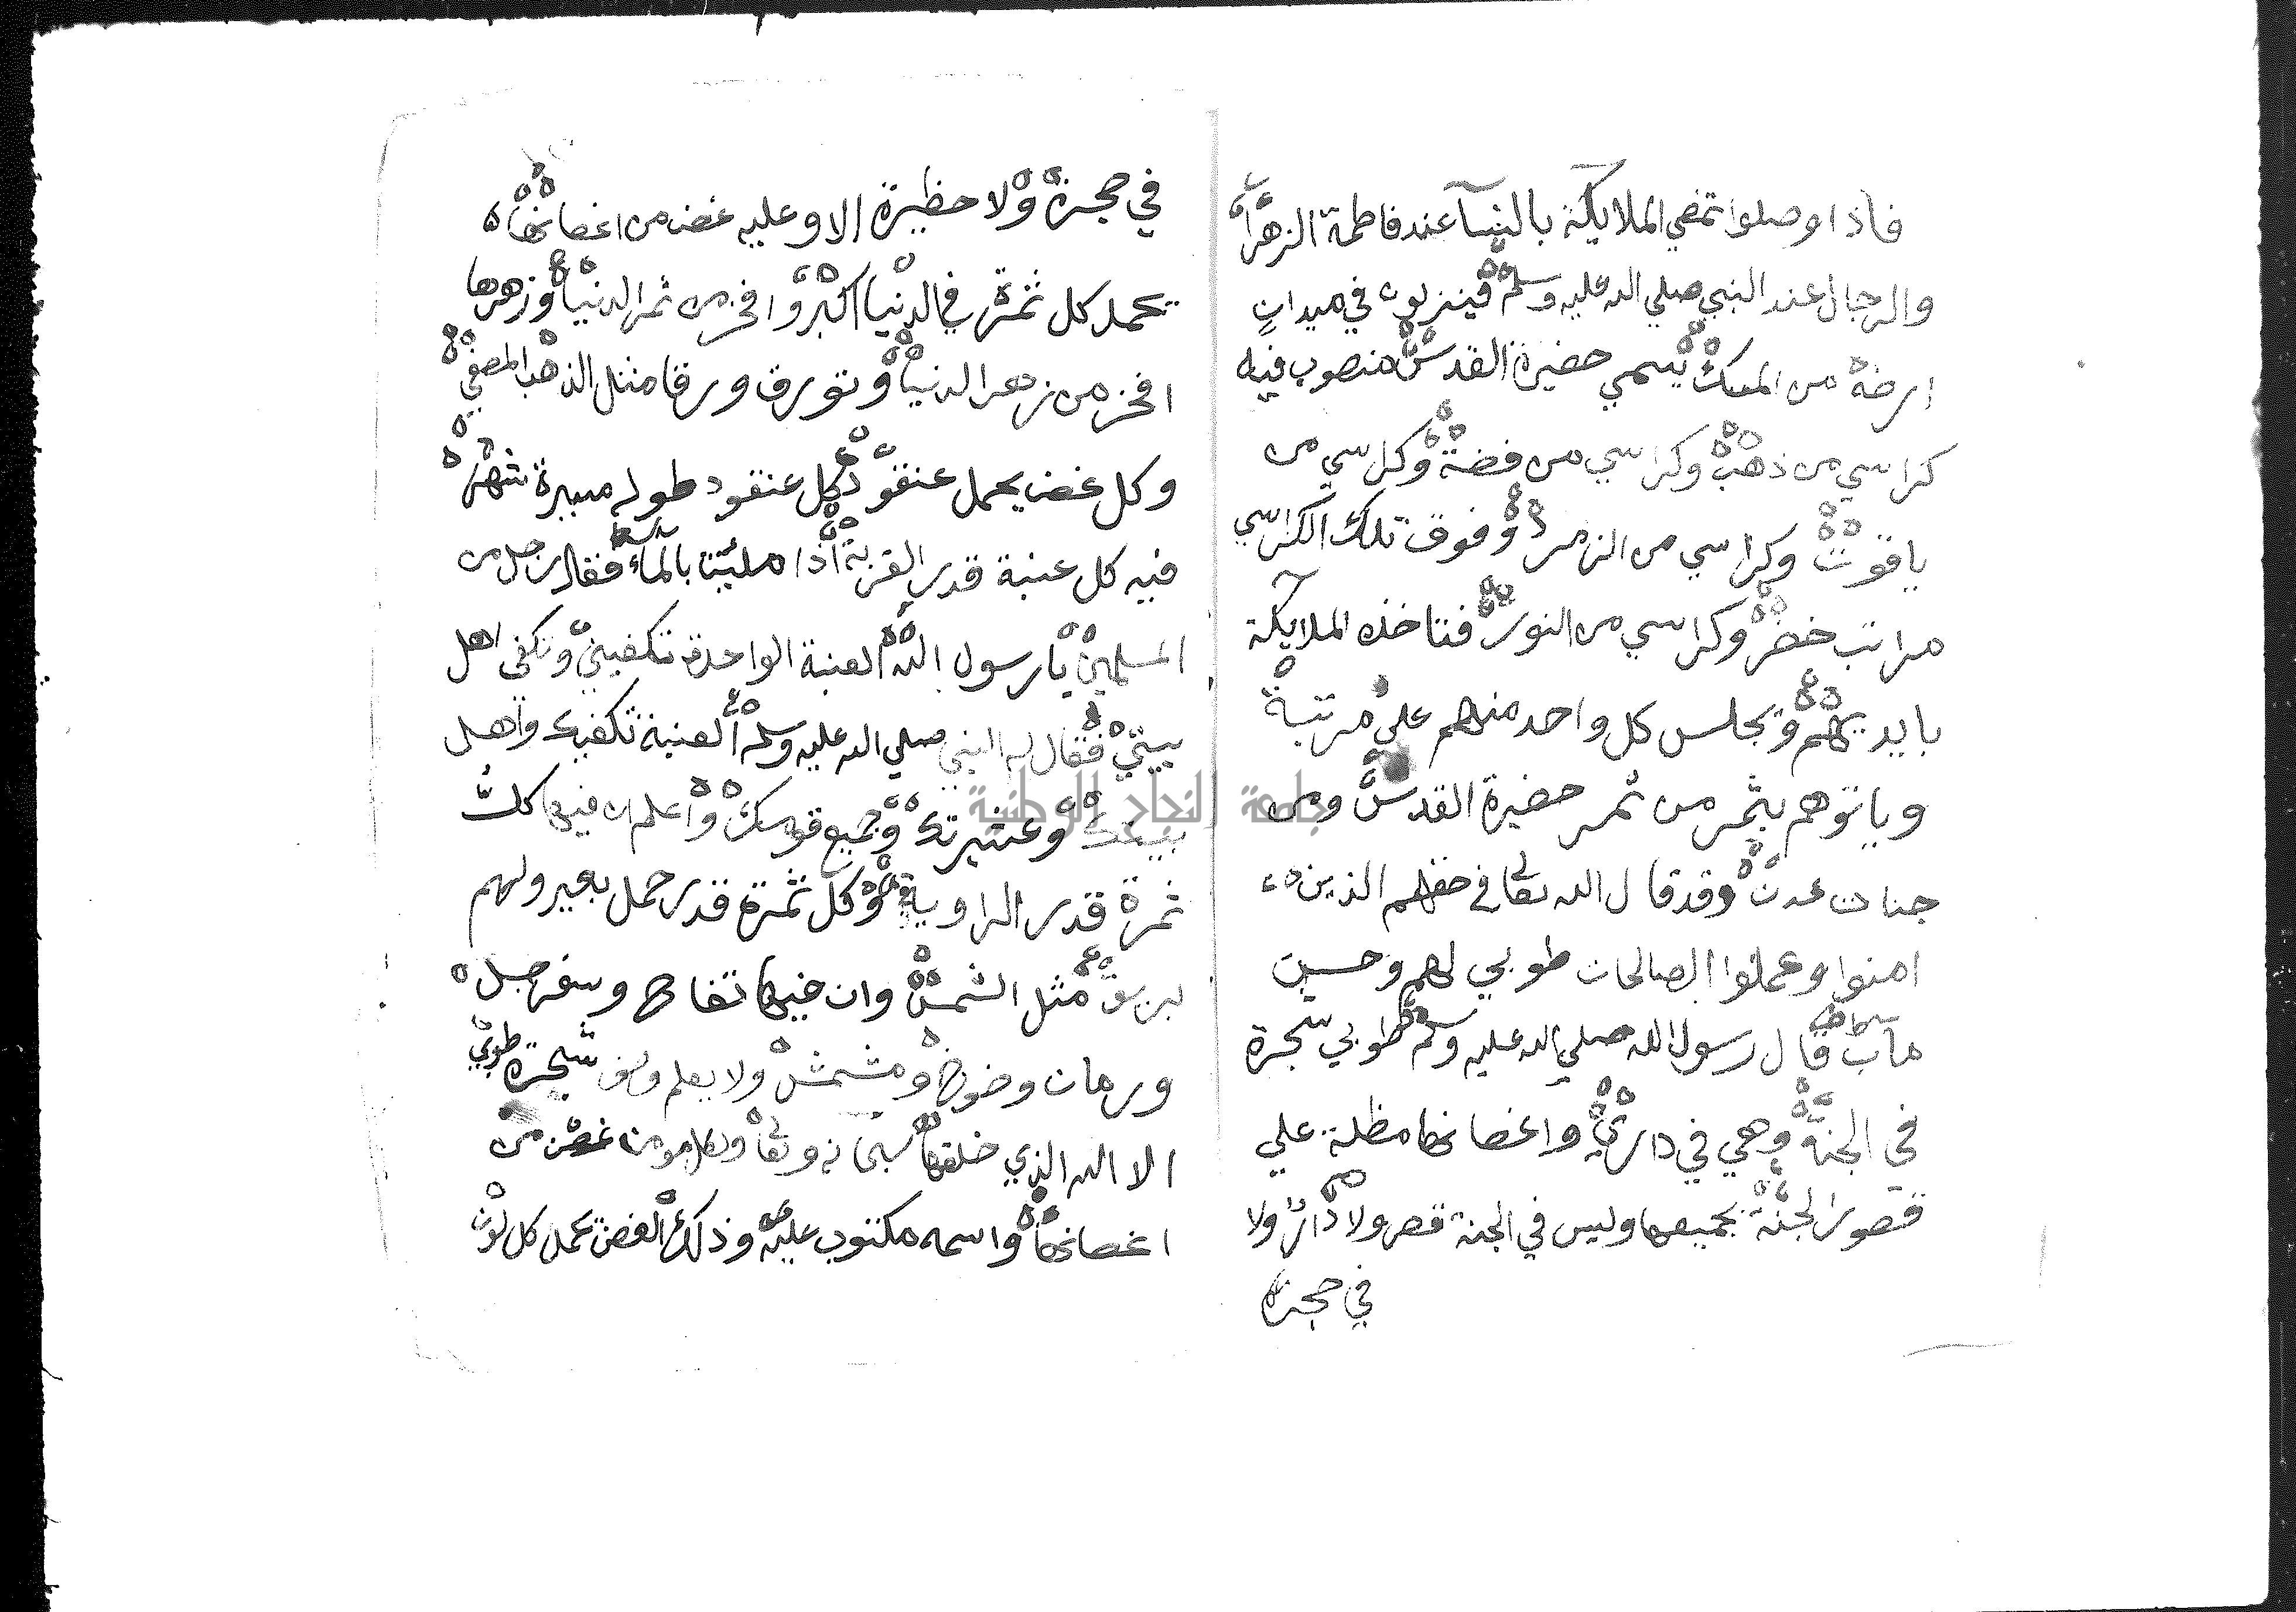 فاذا وصلوا تمضي الملايكة بالنسآ عند فاطمة الزهرآ
والرجال عند النبي صلي الله عليه وسلم فينزلون في ميدان
ارضه من المسك يسمي حضيرة القدس منصوب فيه
كراسي من ذهب وكراسي من فضة وكراسي من
ياقوت وكراسي من الزمرد وفوق تلك الكراسي
مراتب خضر وكراسي من النور فتاخذه الملايكة
بايديهم وتجلس كل واحد منهم علي مرتبة
وياتوهم بثمر من ثمر حضيرة القدس ومن
جنات عدن وقد قال الله تعالي في حقهم الذين
امنوا وعملوا الصالحات طوبي لهم وحسن
مآب قال رسول الله صلي الله عليه وسلم طوبي شجرة
في الجنة وهي في داري واغصانها مظلة علي
قصور الجنة بجميعها وليس في الجنة قصر ولا دار ولا
في حجرة
في حجرة ولا حظيرة الا وعليه غصن من اغصانها
تحمل كل ثمرة في الدنيا اكبر وافخر من ثمر الدنيا وزهرها
افخر من زهر الدنيا وتورق ورقا مثل الذهب المصفي
وكل غصن يحمل عنقود كل عنقود طوله مسيرة شهر
فيه كل عنبة قدر القربة اذا مليت بالماء فقال رجل من
المسلمين يا رسول الله العنبة الواحدة تكفيني وتكفي اهل
بيتي فقال له النبي صلي الله عليه وسلم العنبة تكفيك واهل
بيتك وعشيرتك وجميع قومك واعلم ان فيها كل
ثمرة قدر الراوية وكل ثمرة قدر حمل بعير ولهم
بريق مثل الشمس وان فيها تفاح وسفرجل
ورمان وخوخ ومشمش ولا يعلم وصف شجرة طوبي
الا الله الذي خلقها سبحانه وتعالي ولكل مومن غصن من
اغصانها واسمه مكتوب عليه وذلك الغصن يحمل كل لون
جامعة النجاح الوطنية